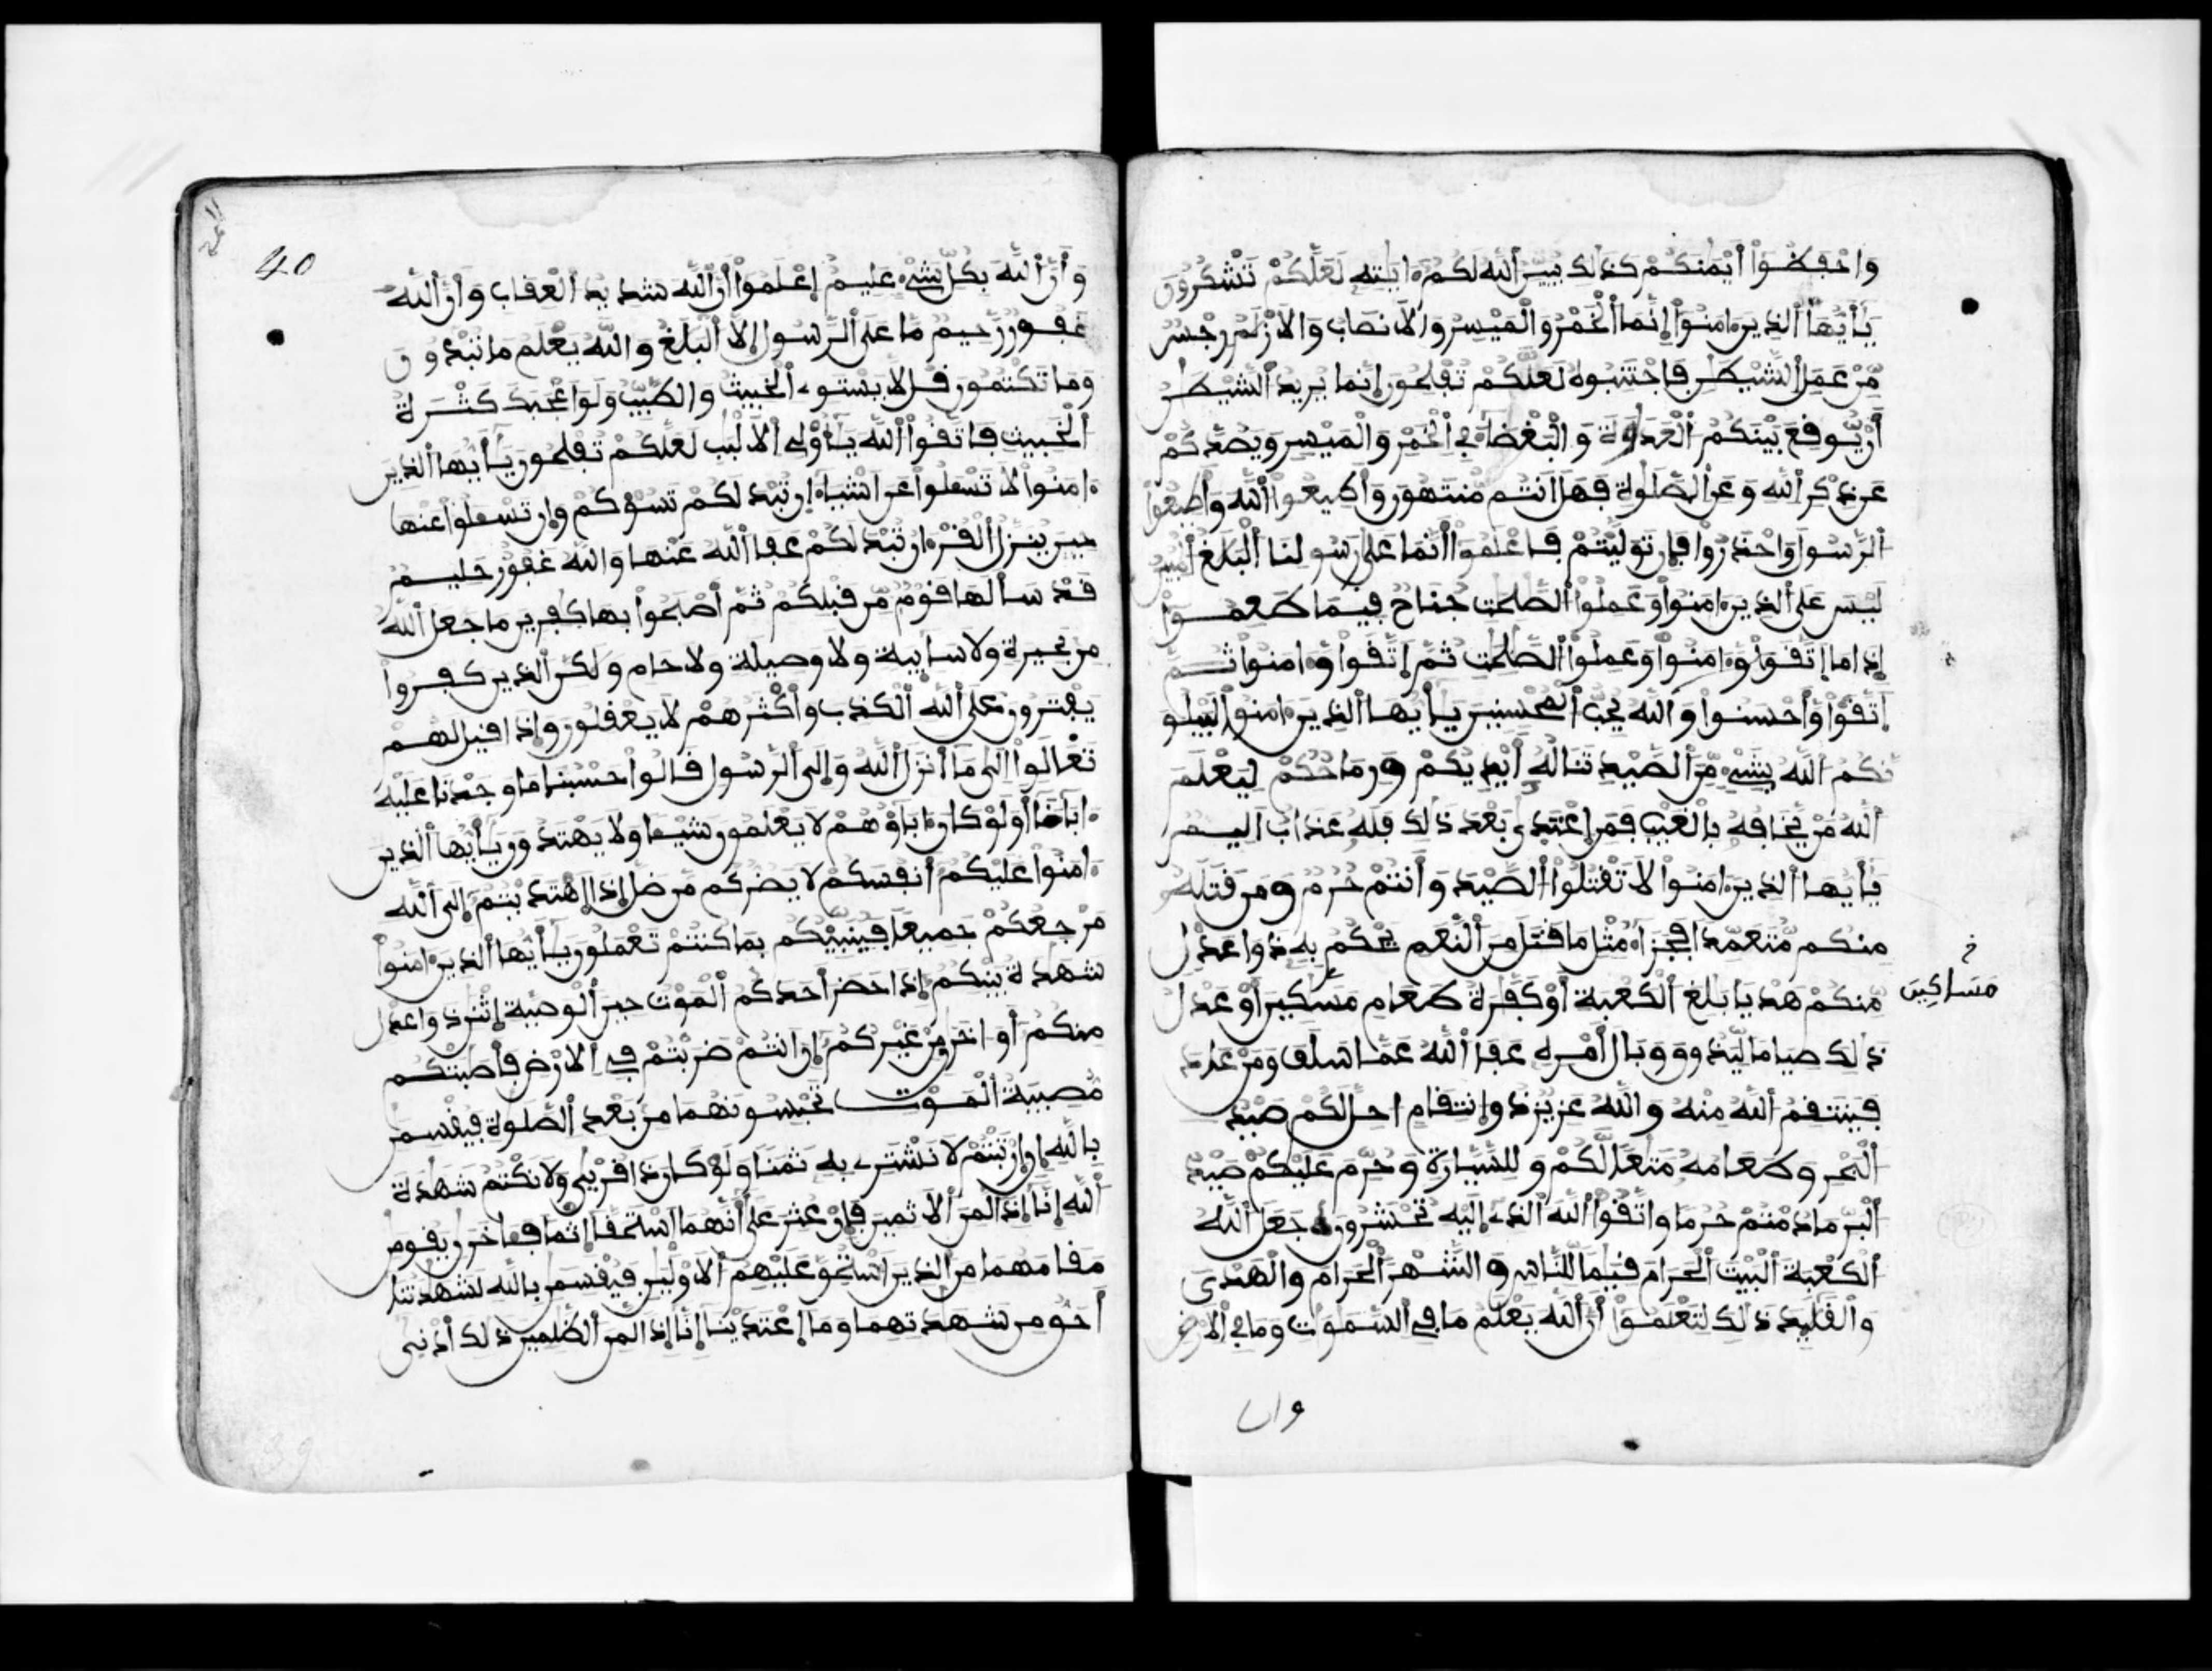 وَاحْفَظُوا أَيْمَٰنَكُمْ كَذَٰلِكَ يُبَيِّنُ اللَّهُ لَكُمْ ءَايَٰتِهِ لَعَلَّكُمْ تَشْكُرُونَ
يَٰأَيُّهَا الذِينَ ءَامَنُوا إِنَّمَا الْخَمْرُ وَالْمَيْسِرُ وَالْأَنصَابُ وَالْأَزْلَٰمُ رِجْسٌ
مِّنْ عَمَلِ الشَّيْطَٰنِ فَاجْتَنِبُوهُ لَعَلَّكُمْ تُفْلِحُونَ إِنَّمَا يُرِيدُ الشَّيْطَٰنُ
أَنْ يُّوقِعَ بَيْنَكُمُ الْعَدَٰوَةَ وَالْبَغْضَاءَ فِي الْخَمْرِ وَالْمَيْسِرِ وَيَصُدَّكُمْ
عَن ذِكْرِ اللَّهِ وَعَنِ الصَّلَوٰةِ فَهَلْ أَنتُم مُّنتَهُونَ وَأَطِيعُوا اللَّهَ وَأَطِيعُوا
الرَّسُولَ وَاحْذَرُوا فَإِن تَوَلَّيْتُمْ فَاعْلَمُوا أَنَّمَا عَلَىٰ رَسُولِنَا الْبَلَٰغُ الْمُبِينُ
لَيْسَ عَلَى الذِينَ ءَامَنُوا وَعَمِلُوا الصَّٰلِحَٰتِ جُنَاحٌ فِيمَا طَعِمُوا
إِذَا مَا إِتَّقَوا وَّءَامَنُوا وَعَمِلُوا الصَّٰلِحَٰتِ ثُمَّ إِتَّقَوا وَّءَامَنُوا ثُمَّ
إِتَّقَوا وَّأَحْسَنُوا وَاللَّهُ يُحِبُّ الْمُحْسِنِينَ يَٰأَيُّهَا الذِينَ ءَامَنُوا لَيَبْلُو
نَّكُمُ اللَّهُ بِشَيْءٍ مِّنَ الصَّيْدِ تَنَالُهُ أَيْدِيكُمْ وَرِمَاحُكُمْ لِيَعْلَمَ
اللَّهُ مَنْ يَّخَافُهُ بِالْغَيْبِ فَمَنِ إِعْتَدَىٰ بَعْدَ ذَٰلِكَ فَلَهُ عَذَابٌ أَلِيمٌ
يَٰأَيُّهَا الذِينَ ءَامَنُوا لَا تَقْتُلُوا الصَّيْدَ وَأَنتُمْ حُرُمٌ وَمَن قَتَلَهُ
مِنكُم مُّتَعَمِّدًا فَجَزَاءُ مِثْلِ مَا قَتَلَ مِنَ النَّعَمِ يَحْكُمُ بِهِ ذَوَا عَدْلٍ
مِّنكُمْ هَدْيًا بَٰلِغَ الْكَعْبَةِ أَوْ كَفَّٰرَةُ طَعَامِ مَسَٰكِينَ أَوْ عَدْلُ
مَسَاكِينَ
ذَٰلِكَ صِيَامًا لِّيَذُوقَ وَبَالَ أَمْرِهِ عَفَا اللَّهُ عَمَّا سَلَفَ وَمَنْ عَادَ
فَيَنتَقِمُ اللَّهُ مِنْهُ وَاللَّهُ عَزِيزٌ ذُو إِنتِقَامٍ أُحِلَّ لَكُمْ صَيْدُ
الْبَحْرِ وَطَعَامُهُ مَتَٰعًا لَّكُمْ وَلِلسَّيَّارَةِ وَحُرِّمَ عَلَيْكُمْ صَيْدُ
الْبَرِّ مَا دُمْتُمْ حُرُمًا وَاتَّقُوا اللَّهَ الذِي إِلَيْهِ تُحْشَرُونَ جَعَلَ اللَّهُ
الْكَعْبَةَ الْبَيْتَ الْحَرَامَ قِيَٰمًا لِّلنَّاسِ وَالشَّهْرَ الْحَرَامَ وَالْهَدْيَ
وَالْقَلَٰئِدَ ذَٰلِكَ لِتَعْلَمُوا أَنَّ اللَّهَ يَعْلَمُ مَا فِي السَّمَٰوَٰتِ وَمَا فِي الْأَرْضِ
وان
40
وَأَنَّ اللَّهَ بِكُلِّ شَيْءٍ عَلِيمٌ إِعْلَمُوا أَنَّ اللَّهَ شَدِيدُ الْعِقَابِ وَأَنَّ اللَّهَ
غَفُورٌ رَّحِيمٌ مَّا عَلَى الرَّسُولِ إِلَّا الْبَلَٰغُ وَاللَّهُ يَعْلَمُ مَا تُبْدُونَ
وَمَا تَكْتُمُونَ قُل لَّا يَسْتَوِي الْخَبِيثُ وَالطَّيِّبُ وَلَوْ أَعْجَبَكَ كَثْرَةُ
الْخَبِيثِ فَاتَّقُوا اللَّهَ يَٰأُوْلِي الْأَلْبَٰبِ لَعَلَّكُمْ تُفْلِحُونَ يَٰأَيُّهَا الذِينَ
ءَامَنُوا لَا تَسْـَٔلُوا عَنْ أَشْيَاءَ إِن تُبْدَ لَكُمْ تَسُؤْكُمْ وَإِن تَسْـَٔلُوا عَنْهَا
حِينَ يُنَزَّلُ الْقُرْءَانُ تُبْدَ لَكُمْ عَفَا اللَّهُ عَنْهَا وَاللَّهُ غَفُورٌ حَلِيمٌ
قَدْ سَأَلَهَا قَوْمٌ مِّن قَبْلِكُمْ ثُمَّ أَصْبَحُوا بِهَا كَٰفِرِينَ مَا جَعَلَ اللَّهُ
مِن بَحِيرَةٍ وَلَا سَائِبَةٍ وَلَا وَصِيلَةٍ وَلَا حَامٍ وَلَٰكِنَّ الذِينَ كَفَرُوا
يَفْتَرُونَ عَلَى اللَّهِ الْكَذِبَ وَأَكْثَرُهُمْ لَا يَعْقِلُونَ وَإِذَا قِيلَ لَهُمْ
تَعَالَوْا إِلَىٰ مَا أَنزَلَ اللَّهُ وَإِلَى الرَّسُولِ قَالُوا حَسْبُنَا مَا وَجَدْنَا عَلَيْهِ
ءَابَاءَنَا أَوَلَوْ كَانَ ءَابَاؤُهُمْ لَا يَعْلَمُونَ شَيْـًٔا وَلَا يَهْتَدُونَ يَٰأَيُّهَا الذِينَ
ءَامَنُوا عَلَيْكُمْ أَنفُسَكُمْ لَا يَضُرُّكُم مَّن ضَلَّ إِذَا إِهْتَدَيْتُمْ إِلَى اللَّهِ
مَرْجِعُكُمْ جَمِيعًا فَيُنَبِّئُكُم بِمَا كُنتُمْ تَعْمَلُونَ يَٰأَيُّهَا الذِينَ ءَامَنُوا
شَهَٰدَةُ بَيْنِكُمْ إِذَا حَضَرَ أَحَدَكُمُ الْمَوْتُ حِينَ الْوَصِيَّةِ إِثْنَٰنِ ذَوَا عَدْلٍ
مِّنكُمْ أَوَ ءَاخَرَٰنِ مِنْ غَيْرِكُمْ إِنْ أَنتُمْ ضَرَبْتُمْ فِي الْأَرْضِ فَأَصَٰبَتْكُم
مُّصِيبَةُ الْمَوْتِ تَحْبِسُونَهُمَا مِن بَعْدِ الصَّلَوٰةِ فَيُقْسِمَٰنِ
بِاللَّهِ إِنِ إِرْتَبْتُمْ لَا نَشْتَرِي بِهِ ثَمَنًا وَلَوْ كَانَ ذَا قُرْبَىٰ وَلَا نَكْتُمُ شَهَٰدَةَ
اللَّهِ إِنَّا إِذًا لَّمِنَ الْأَثِمِينَ فَإِنْ عُثِرَ عَلَىٰ أَنَّهُمَا اسْتَحَقَّا إِثْمًا فَـَٔاخَرَٰنِ يَقُومَٰنِ
مَقَامَهُمَا مِنَ الذِينَ اسْتُحِقَّ عَلَيْهِمُ الْأَوْلَيَٰنِ فَيُقْسِمَٰنِ بِاللَّهِ لَشَهَٰدَتُنَا
أَحَقُّ مِن شَهَٰدَتِهِمَا وَمَا إِعْتَدَيْنَا إِنَّا إِذًا لَّمِنَ الظَّٰلِمِينَ ذَٰلِكَ أَدْنَىٰ